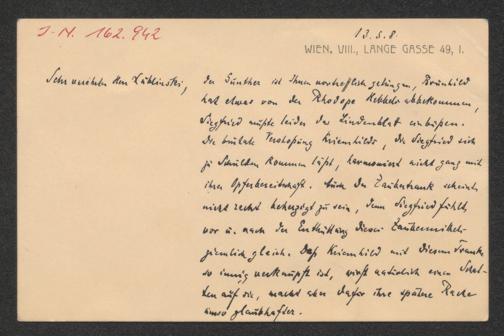 J.N. 162.942
13.5.8.
WIEN, VIII., LANGE GASSE 49, I.
Sehr verehrter Herr Lublinski,
der Günther ist Ihnen vortrefflich gelungen, Brünhild
hat etwas von der Rhodope Hebbels abbekommen,
Siegfried mußte leider das Lindenblatt einbüßen.
Die brutale Verstoßung Kriemhilds, die Siegfried sich
zu Schulden kommen läßt, harmonisirt nicht ganz mit
ihrer Opferbereitschaft. Auch der Zaubertrank scheint
nicht recht beherzigt zu sein, denn Siegfried fühlt
vor u. nach der Enthüllung dieses
ziemlich gleich. Daß Kriemhild mit diesem Tranke
so innig verknüpft ist, wirft natürlich einen Schat-
ten auf sie, macht aber dafür ihre spätere Rache
umso glaubhafter.